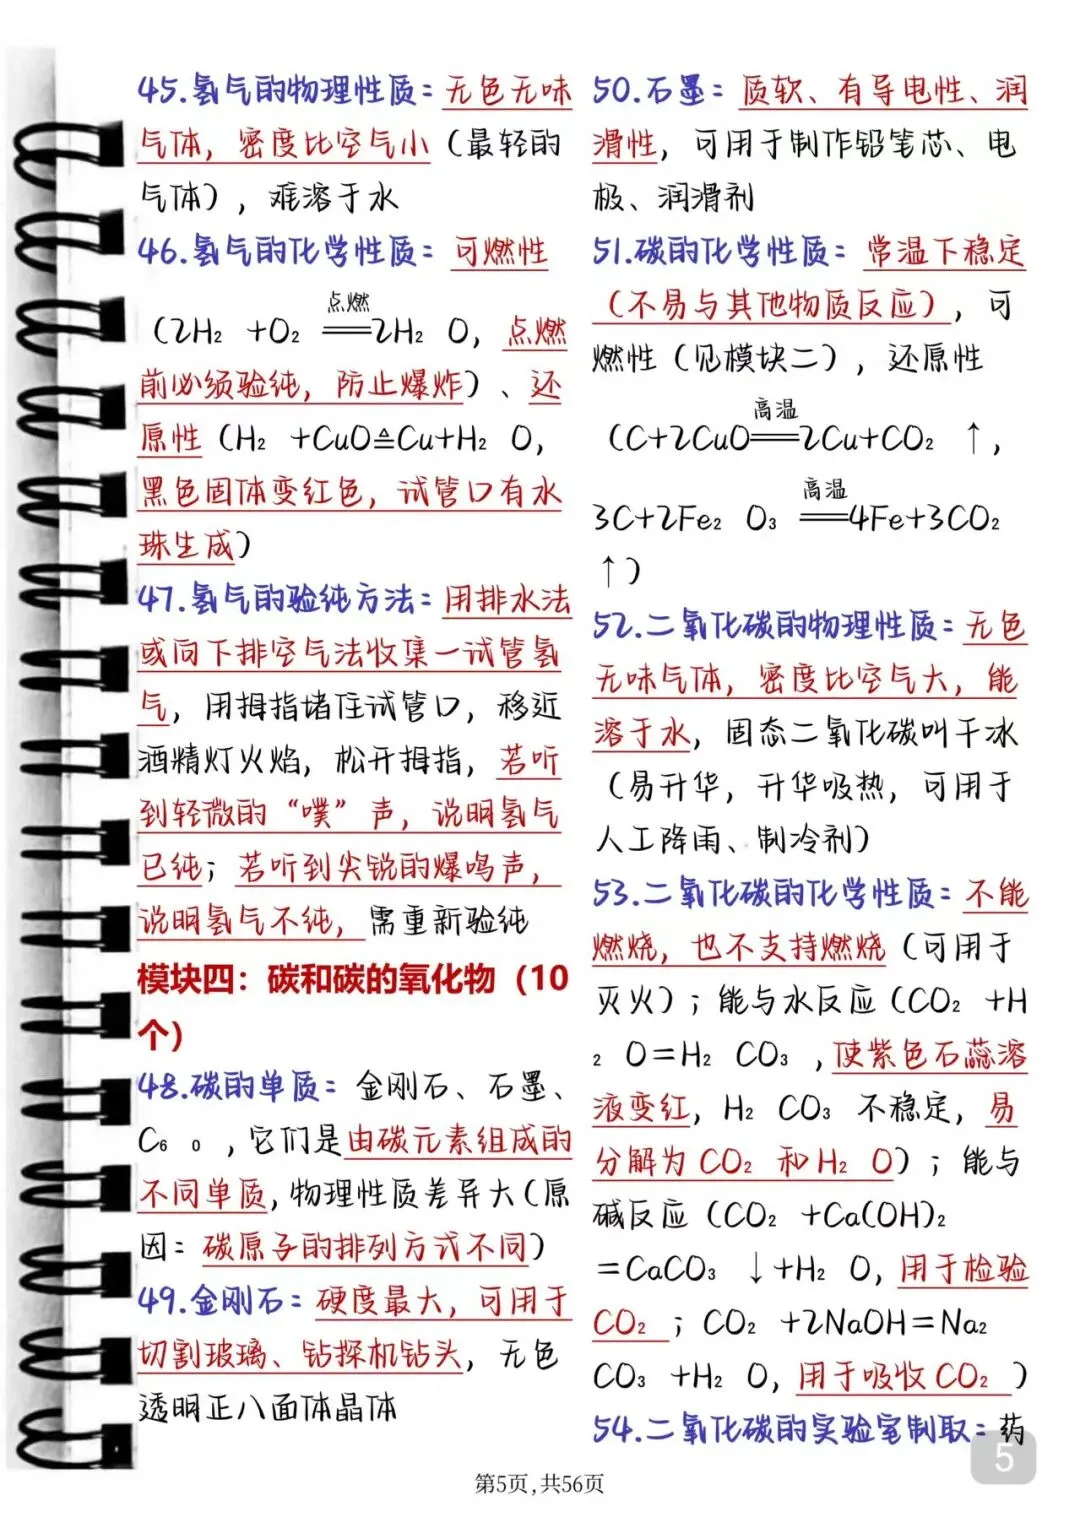 45.氢气的物理性质：无色无味
气体，密度比空气小（最轻的
气体），难溶于水
46.氢气的化学性质：可燃性
点燃
（2H₂ +O₂ ══2H₂ O，点燃
前必须验纯，防止爆炸）、还
原性（H₂ +CuO≜Cu+H₂ O，
黑色固体变红色，试管口有水
珠生成）
47.氢气的验纯方法：用排水法
或向下排空气法收集一试管氢
气，用拇指堵住试管口，移近
酒精灯火焰，松开拇指，若听
到轻微的“噗”声，说明氢气
已纯；若听到尖锐的爆鸣声，
说明氢气不纯，需重新验纯
模块四：碳和碳的氧化物（10
个）
48.碳的单质：金刚石、石墨、
C₆ ₀ ，它们是由碳元素组成的
不同单质，物理性质差异大（原
因：碳原子的排列方式不同）
49.金刚石：硬度最大，可用于
切割玻璃、钻探机钻头，无色
透明正八面体晶体
50.石墨：质软、有导电性、润
滑性，可用于制作铅笔芯、电
极、润滑剂
51.碳的化学性质：常温下稳定
（不易与其他物质反应），可
燃性（见模块二），还原性
高温
（C+2CuO══2Cu+CO₂ ↑，
高温
3C+2Fe₂ O₃ ══4Fe+3CO₂
↑）
52.二氧化碳的物理性质：无色
无味气体，密度比空气大，能
溶于水，固态二氧化碳叫干冰
（易升华，升华吸热，可用于
人工降雨、制冷剂）
53.二氧化碳的化学性质：不能
燃烧，也不支持燃烧（可用于
灭火）；能与水反应（CO₂ +H
₂ O=H₂ CO₃ ，使紫色石蕊溶
液变红，H₂ CO₃ 不稳定，易
分解为CO₂ 和H₂ O）；能与
碱反应（CO₂ +Ca(OH)₂
=CaCO₃ ↓+H₂ O，用于检验
CO₂ ；CO₂ +2NaOH=Na₂
CO₃ +H₂ O，用于吸收CO₂ ）
54.二氧化碳的实验室制取：药
5
第5页，共56页